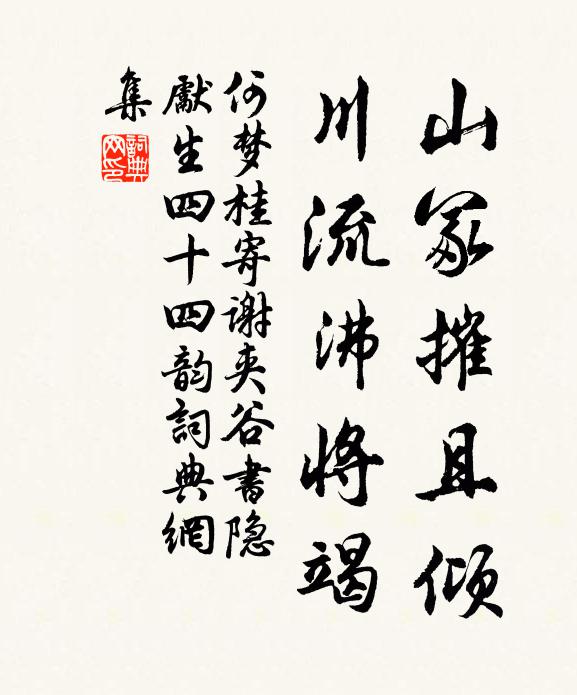 山冢摧且倾
川流沸将竭
何梦桂寄谢夹谷书隐
献生四十四韵詞典網
集
詞典
网印